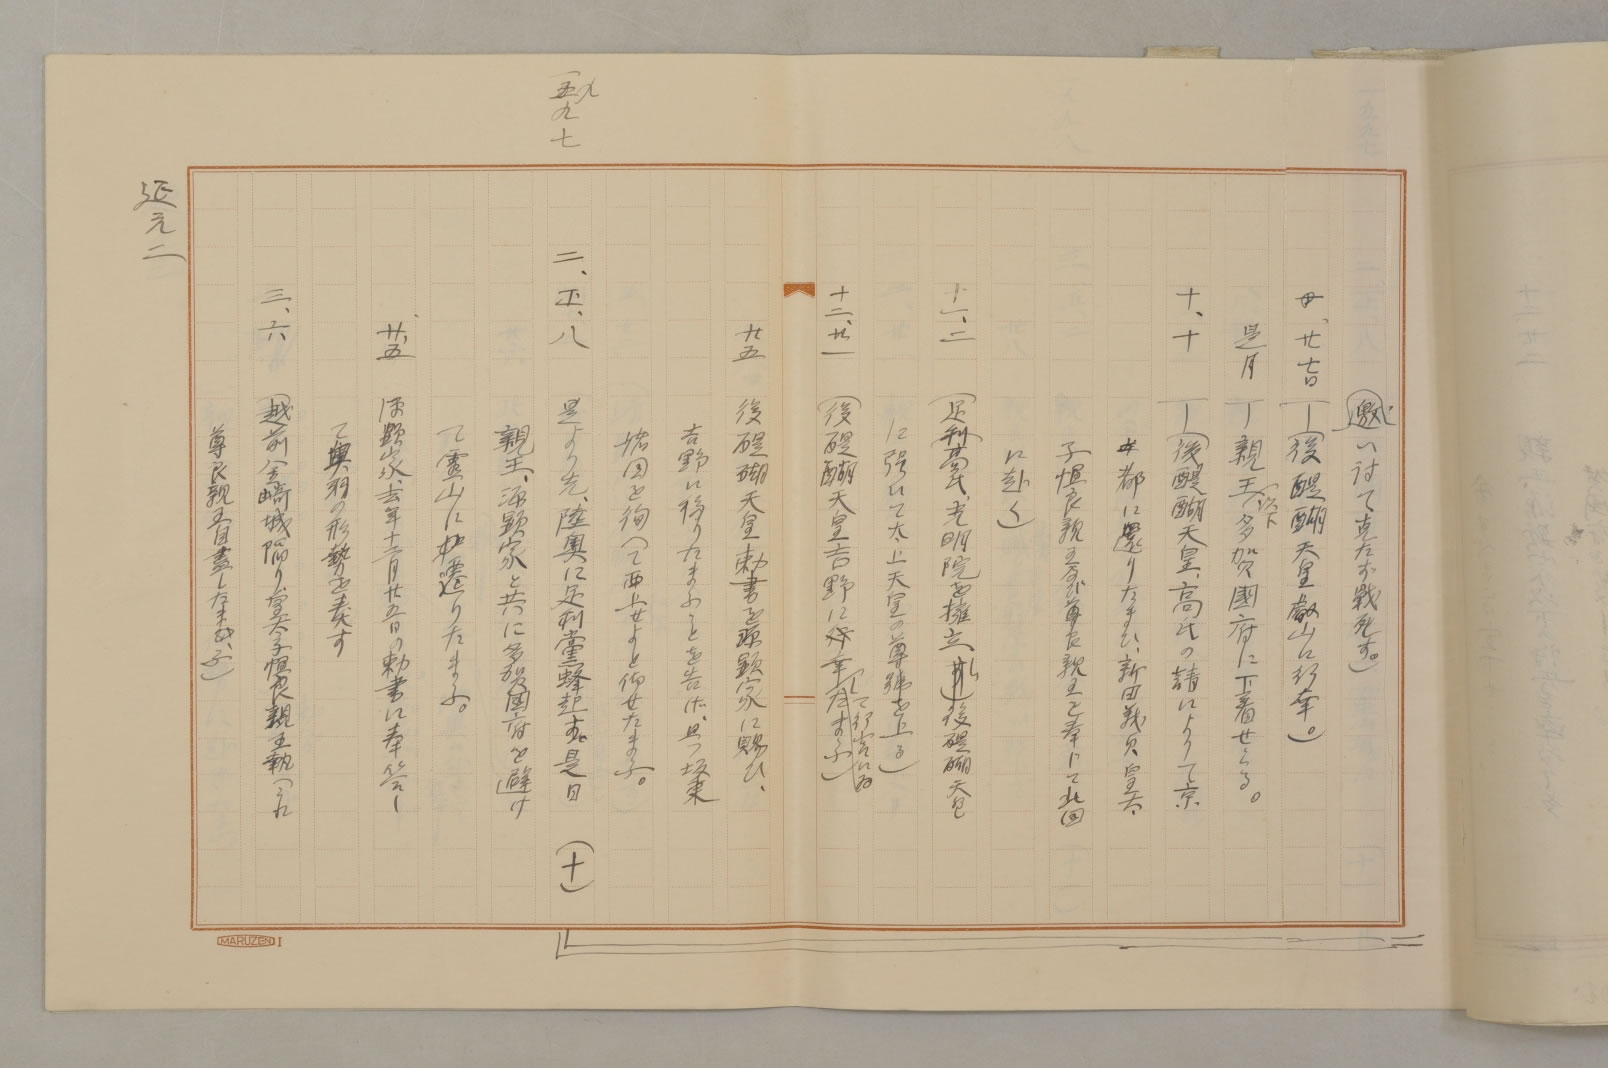 (邀)い討て克たず戰死す。)
廿七日 (一(後醍醐天皇叡山に行幸。)
是月 一親王(以下多賀國府に下着せらる。
十、十 一(後醍醐天皇、高氏の請によりて京
都に還りたまひ、新田義貞、皇太
子恒良親王及尊良親王を奉じて北國
に赴く)
十一、二 (足利高氏、光明院を擁立し、後醍醐天皇
に强いて太上天皇の尊號を上る)
十二、廿一 (後醍醐天皇吉野に幸して行宮に為したまふ)
廿五 後醍醐天皇勅書を源顕家に賜ひ、
吉野に移りたまふことを告げ、且つ坂東
諸国を徇へて西上せよと仰せたまふ。
一九九七
二、正、八 是より先、陸奥に足利黨蜂起す。是日 (十)
親王、源顕家と共に多賀国府を避け
て霊山に遷りたまふ。
廿五、 源顕家、去年十二月廿五日の勅書に奉答し
て奥羽の形勢を奏す
三、六 (越前金崎城陥り、皇太子恒良親王執へられ
尊良親王自盡したまふ)
延元二
MARUZEN I